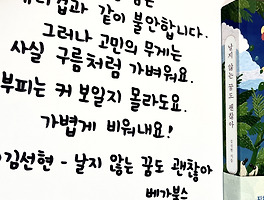 같이 불안합니다.
그러나 고민의 무게는
사실 구름처럼 가벼워요.
부피는 커 보일지 몰라도요.
가볍게 비워내요!
김선현 - 날지 않는 꿈도 괜찮아
베가북스
날지 않는 꿈도 괜찮아